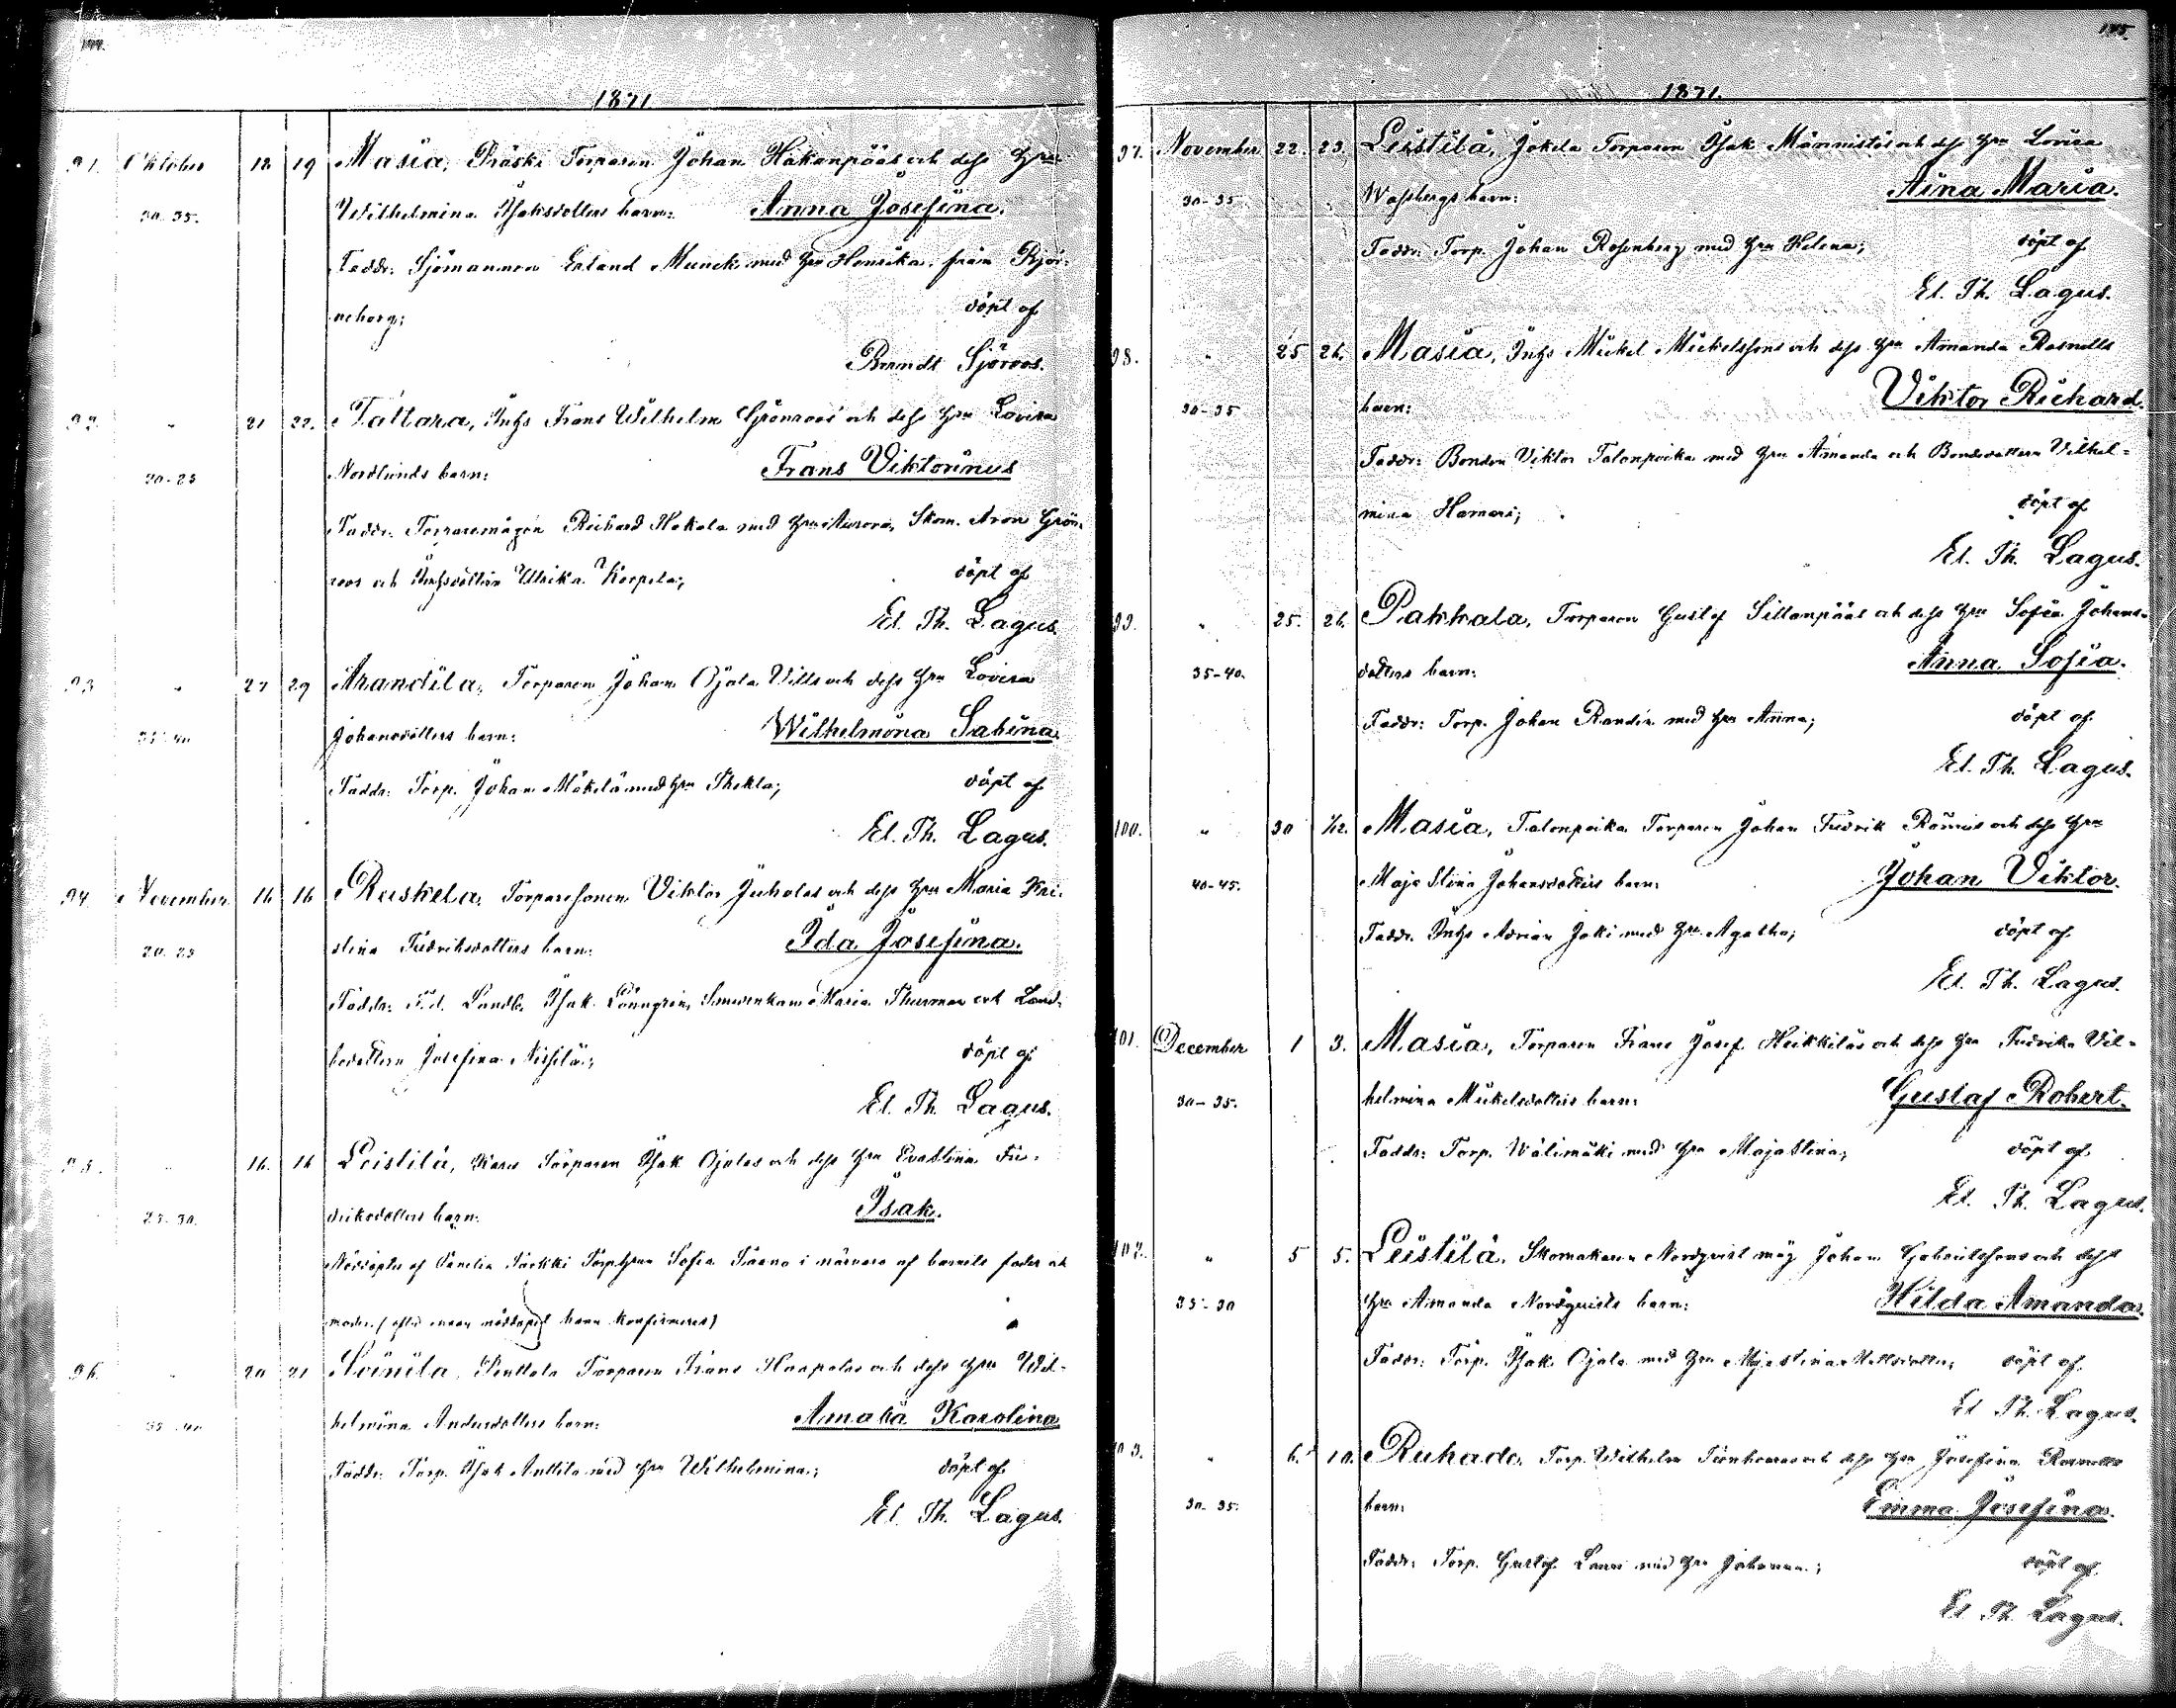 144.
1871
91. Oktober 18 19 Masia, Präski Torparen Johan Hakanpääs och dess hu
30-35. Wilhelmina Isaksdotters barn: Anna Josefina.
Faddr: Sjömannen Erland Munck med hu Henrika från Björ-
neborg; döpt af
Berndt Sjöroos.
92. " 21 22. Tattara, Inhs Frans Wilhelm Grönroos och dess hu Lovisa
20-25 Nordlunds barn: Frans Viktorinus
Faddr: Torparemågen Richard Hakala med hu Aurora, Skom. Aron Grön-
roos och Inhsdottern Ulrika Korpela; döpt af
El. Th. Lagus.
93 " 27 29 Arandila, Torparen Johan Ojala Vills och dess hu Lovisa
35-40 Johansdotters barn: Wilhelmina Sabina
Faddr: Torp. Johan Mäkelä med hu Thekla; döpt af
El. Th. Lagus.
94. November 16 16 Ruskela, Torparesonen Viktor Juholas och dess hu Maria Kri-
20-25 stina Fredriksdotters barn: Ida Josefina.
Faddr: F.d. Landb. Isak Lönngren, Maria Thurman och Land-
bodottern Josefina Nissilä; döpt af
El. Th. Lagus.
95. " 16. 16 Leistilä, Karu Torparen Isak Ojalas och dess hu Evastina Fre-
25-30. driksdotters barn: Isak.
Nöddöpter af Torphun Sofia i närvaro af barnets fader och
moder. (efter nöddopet barn konfirmeras)
96. " 20 21 Soinila, Penttala Torparen Frans Haapalas och dess hu Wil-
35-40. helmina Andersdotters barn: Amalia Karolina
Faddr: Torp. Isak Anttila med hu Wilhelmina; döpt af
El. Th. Lagus.
145.
1871.
97. November 22. 23. Leistilä, Jokela Torparen Isak Männistös och dess hu Lovisa
30-35 Wassbergs barn: Aina Maria.
Faddr: Torp. Johan Rosenberg med hu Helena; döpt af
El. Th. Lagus.
98. " 25 26. Masia, Inhs Mickel Mickelssons och dess hu Amanda Rosnells
30-35 barn: Viktor Richard.
Faddr: Bonden Viktor Talonpoika med hu Amanda och Bondedottern Vilhel-
mina Hamari; döpt af
El. Th. Lagus.
99. " 25. 26. Pakkala, Torparen Gustaf Sillanpääs och dess hu Sofia Johans-
35-40. dotters barn: Anna Sofia.
Faddr: Torp. Johan Randén med hu Anna; döpt af
El. Th. Lagus.
100. " 30 1/12. Masia, Talonpoika Torparen Johan Fredrik och dess hu
40-45. Maja Stina Johansdotters barn: Johan Viktor.
Faddr: Inhs Adrian Joki med hu Agatha; döpt af
El. Th. Lagus.
101. December 1 3. Masia, Torparen Frans Josef Heikkiläs och dess hu Fredrika Vil-
30-35. helmina Mickelsdotters barn: Gustaf Robert.
Faddr: Torp. Wälimäki med hu Maja Stina; döpt af
El. Th. Lagus.
102. " 5 5. Leistilä, Skomakaren Nordqvist måg Johan Gabrielssons och dess
25-30 hu Amanda Nordqvists barn: Hilda Amanda.
Faddr: Torp. Isak Ojala med hu Majastina Mattsdotter; döpt af
El. Th. Lagus.
103. " 6. 10. Ruhade, Torp. Wilhelm och dess hu Josefina Rosnells
30-35. barn: Emma Josefina.
Faddr: Torp. Gustaf Lauri med hu Johanna; döpt af
El. Th. Lagus.